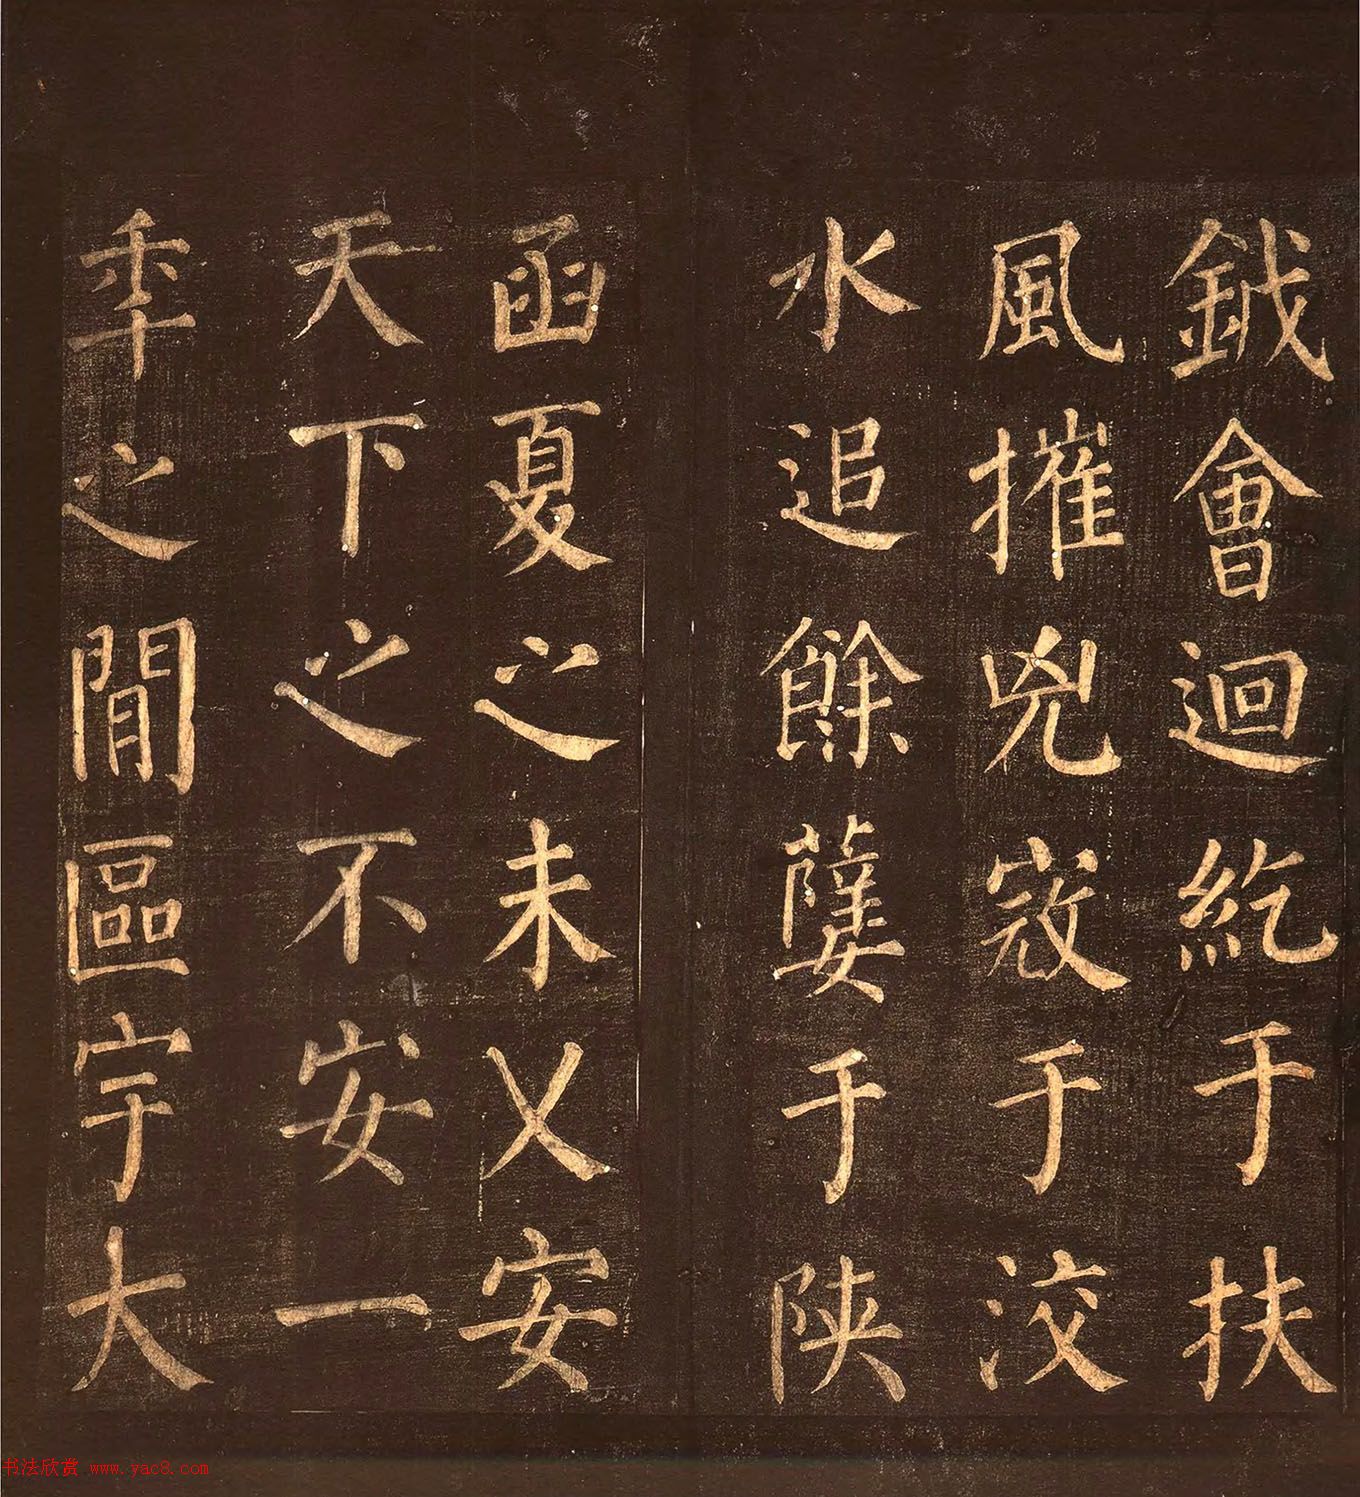 鉞會迴紇于扶
風摧兇寇于洨
水追餘孽于陝
函夏之未乂安
天下之不安一
秊之間區宇大
书法欣赏 www.yac8.com